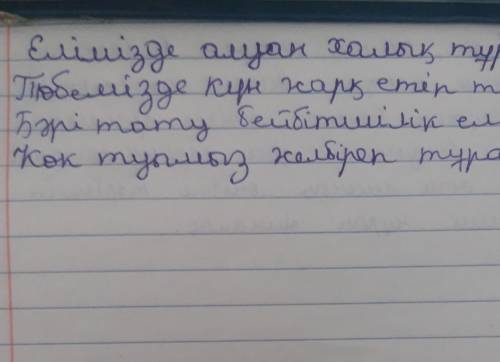 Елімізде алуан халық тұр
Төбемізде күн жарқ етіп т
Бәрі тату бейбітшілік ел
Көк туымыз желбіреп тұра